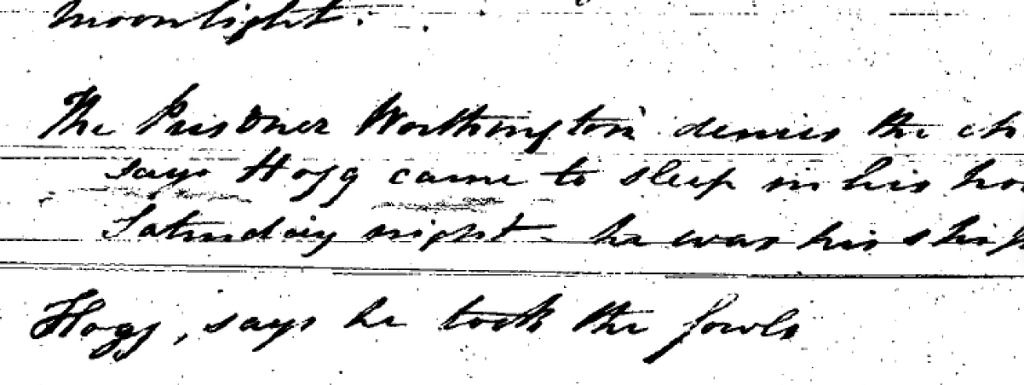 moonlight.
The Prisoner Worthington denies the ch
says Hogg came to sleep in his hou
Saturday night - he was his ship
Hogg, says he took the fowls